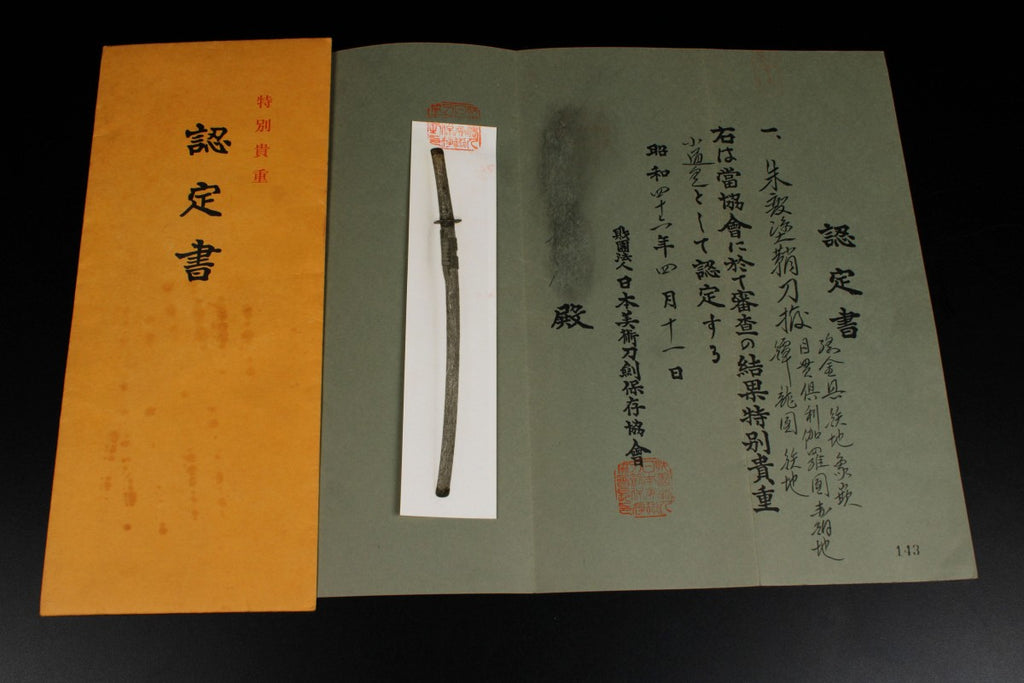 特別貴重
認定書
認定書
一、朱変塗鞘刀拵
鐔 龍図 鉄地
縁金具鉄地象嵌
目貫倶利伽羅図赤銅地
右は當協會に於て審査の結果特別貴重
小道具として認定する
昭和四十六年四月十一日
財團法人日本美術刀劍保存協會
殿
143